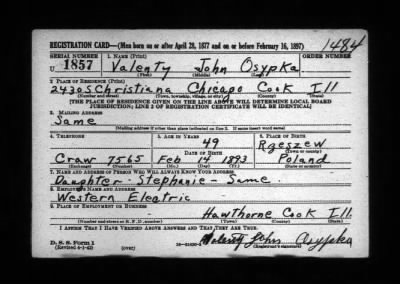 1484
REGISTRATION CARD—(Men born on or after April 28, 1877 and on or before February 16, 1897)
SERIAL NUMBER 1. NAME (Print) ORDER NUMBER
U 1857 Valenty John Osypka
(First) (Middle) (Last)
2. PLACE OF RESIDENCE (Print)
2430 S Christiana Chicago Cook Ill
(Number and street) (Town, township, village, or city) (County) (State)
[THE PLACE OF RESIDENCE GIVEN ON THE LINE ABOVE WILL DETERMINE LOCAL BOARD
JURISDICTION; LINE 2 OF REGISTRATION CERTIFICATE WILL BE IDENTICAL]
3. MAILING ADDRESS
Same
[Mailing address if other than place indicated on line 2. If same insert word same]
4. TELEPHONE 5. AGE IN YEARS 6. PLACE OF BIRTH
49 Rzeszew
DATE OF BIRTH (Town or county)
Craw 7565 Feb 14 1893 Poland
(Exchange) (Number) (Mo.) (Day) (Yr.) (State or country)
7. NAME AND ADDRESS OF PERSON WHO WILL ALWAYS KNOW YOUR ADDRESS
Daughter - Stephanie - Same
8. EMPLOYER'S NAME AND ADDRESS
Western Electric
9. PLACE OF EMPLOYMENT OR BUSINESS
Hawthorne Cook Ill.
(Number and street or R. F. D. number) (Town) (County) (State)
I AFFIRM THAT I HAVE VERIFIED ABOVE ANSWERS AND THAT THEY ARE TRUE.
D. S. S. Form 1
(Revised 4-1-42) (over) Valenty John Osypka
(Registrant's signature)